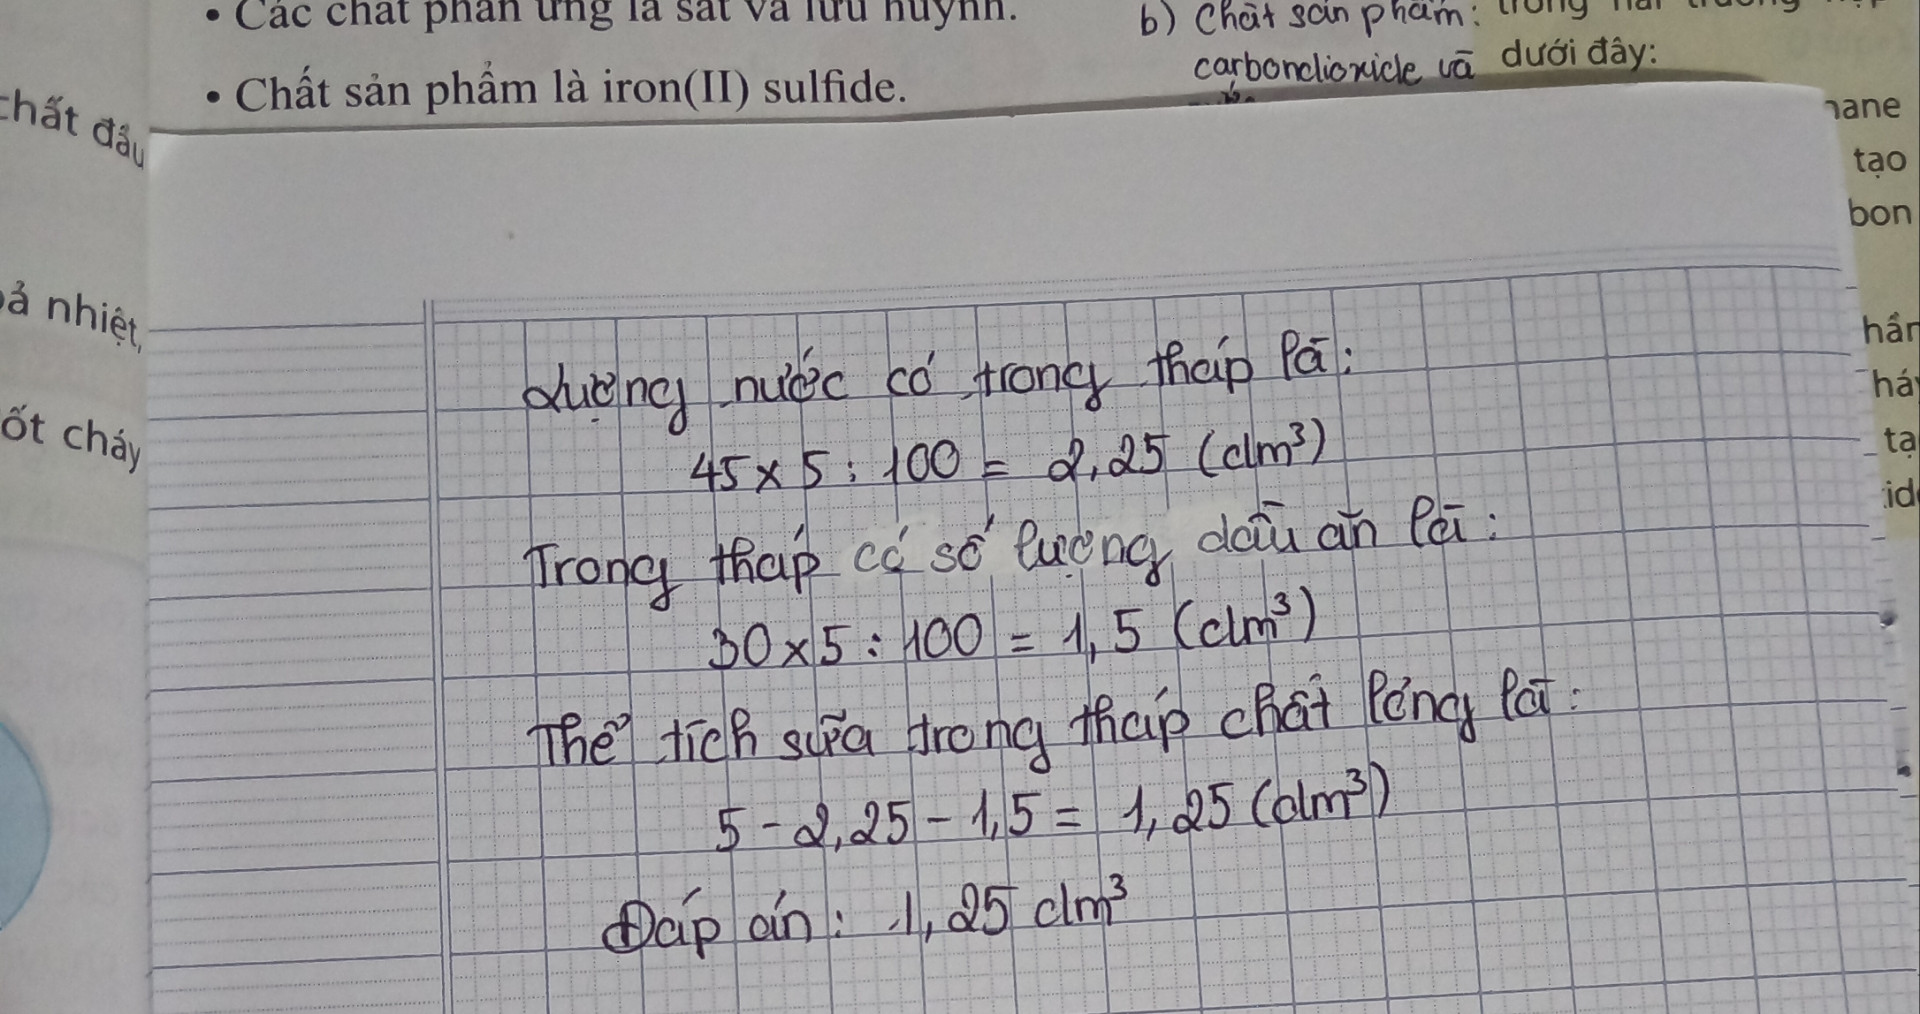 • Các chất phản ứng là sắt và lưu huỳnh.
• Chất sản phẩm là iron(II) sulfide.
b) Chất sản phẩm:
carbondioxide và
dưới đây:
chất đầu
ả nhiệt,
ốt cháy
tạo
bon
Lượng nước có trong tháp là:
45 x 5 : 100 = 2,25 (dm³)
Trong tháp có số lượng dầu ăn là:
30 x 5 : 100 = 1,5 (dm³)
Thể tích sữa trong tháp chất lỏng là:
5 - 2,25 - 1,5 = 1,25 (dm³)
Đáp án: 1,25 dm³